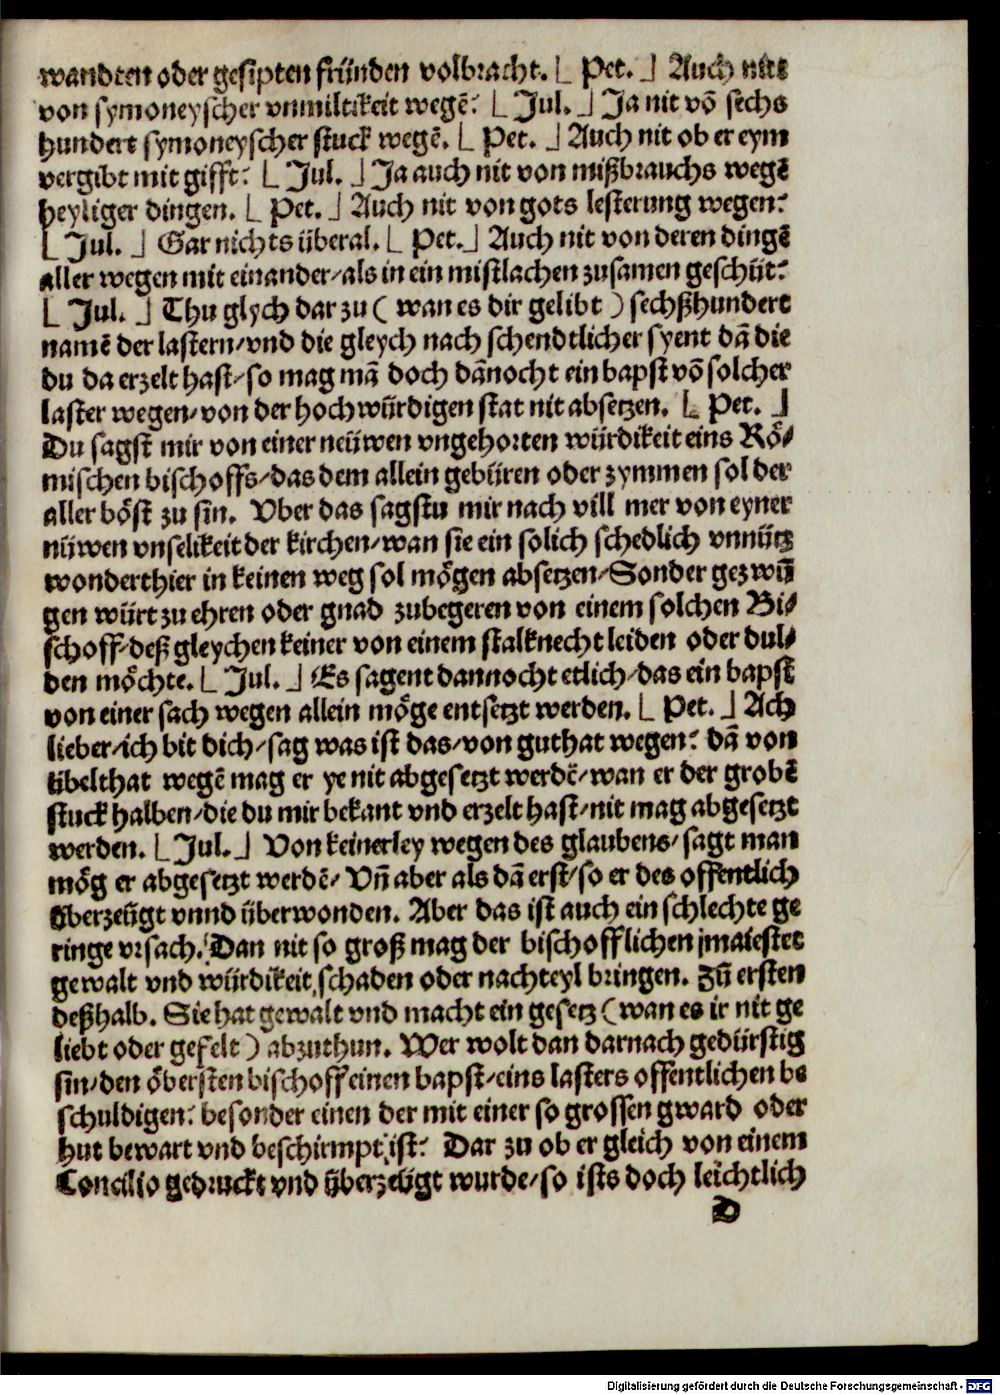 wandten oder gesipten fründen volbracht. [ Pet. ] Auch nitt
von symoneyscher vnmiltikeit wegē? [ Jul. ] Ja nit vō sechs
hundert symoneyscher stuck wegē. [ Pet. ] Auch nit ob er eym
vergibt mit gifft? [ Jul. ] Ja auch nit von mißbrauchs wegē
heyliger dingen. [ Pet. ] Auch nit von gots lesterung wegen?
[ Jul. ] Gar nichts überal. [ Pet. ] Auch nit von deren dingē
aller wegen mit einander/als in ein mistlachen zusamen geschüt?
[ Jul. ] Thu glych dar zu ( wan es dir gelibt ) sechßhundert
namē der lastern/vnd die gleych nach schendtlicher syent dā die
du da erzelt hast/so mag mā doch dānocht ein bapst vō solcher
laster wegen/von der hochwürdigen stat nit absetzen. [ Pet. ]
Du sagst mir von einer neüwen vngehorten würdikeit eins Rö/
mischen bischoffs/das dem allein gebüren oder zymmen sol der
aller böst zu sin. Vber das sagstu mir nach vill mer von eyner
nüwen vnselikeit der kirchen/wan sie ein solich schedlich vnnütz
wonderthier in keinen weg sol mögen absetzen/Sonder gezwū
gen würt zu ehren oder gnad zubegeren von einem solchen Bi/
schoff/deß gleychen keiner von einem stalknecht leiden oder dul/
den möchte. [ Jul. ] Es sagent dannocht etlich/das ein bapst
von einer sach wegen allein möge entsetzt werden. [ Pet. ] Ach
lieber/ich bit dich/sag was ist das/von guthat wegen? dā von
übelthat wegē mag er ye nit abgesetzt werdē/wan er der grobē
stuck halben/die du mir bekant vnd erzelt hast/nit mag abgesetzt
werden. [ Jul. ] Von keinerley wegen des glaubens/sagt man
mög er abgesetzt werdē/Vn̄ aber als dā erst/so er des offentlich
überzeügt vnnd überwonden. Aber das ist auch ein schlechte ge
ringe vrsach. Dan nit so groß mag der bischofflichen maiestet
gewalt vnd würdikeit schaden oder nachteyl bringen. Zū ersten
deßhalb. Sie hat gewalt vnd macht ein gesetz ( wan es ir nit ge
liebt oder gefelt ) abzuthun. Wer wolt dan darnach gedürstig
sin/den öbersten bischoff einen bapst/eins lasters offentlichen be
schuldigen? besonder einen der mit einer so grossen gward oder
hut bewart vnd beschirmpt ist? Dar zu ob er gleich von einem
Concilio gedruckt vnd überzeügt wurde/so ists doch leichtlich
D
Digitalisierung gefördert durch die Deutsche Forschungsgemeinschaft - DFG